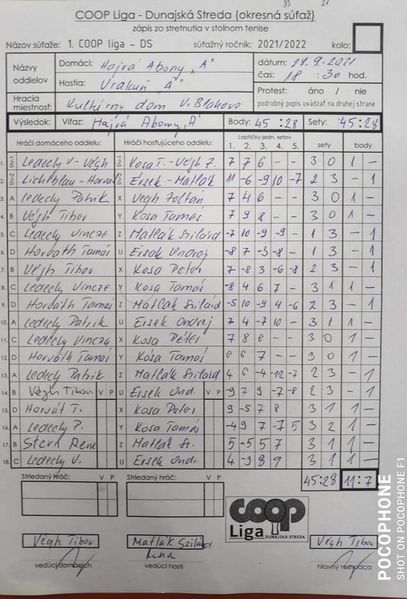 COOP Liga - Dunajská Streda (okresná súťaž)
zápis zo stretnutia v stolnom tenise
Názov súťaže: 1. COOP liga - DS súťažný ročník: 2021/2022 kolo:
Názvy oddielov Domáci: Hajrá Abony "A" dátum: 2021
Hostia: Vrakuň "A" čas: 18:30 hod.
Hracia miestnosť: Kultúrny dom V. Blahovo Protest: áno / nie
podrobný popis uvádzať na druhej strane
Výsledok: Víťaz: Hajrá Abony "A" Body: 45:28 Sety: 45:28
Hráči domáceho oddielu: Hráči hosťujúceho oddielu: Loptičky jedn. setov 1. 2. 3. 4. 5. sety body
1. Ledechy - Végh Kosa T. - Vegh Z. 7 7 6 - - 3 0 1 -
2. Lichtblau - Horváth Érsek - Matlák 11 -6 -9 10 -7 2 3 - 1
3. A Ledechy Patrik X Vegh Zoltan 7 4 6 3 0 1 -
4. B Végh Tibor Y Kosa Tamas 7 9 8 - 3 0 1 -
5. C Ledechy Vincze Z Matlák Szilárd -7 10 -9 -9 1 3 - 1
6. D Horváth Tamás U Érsek Ondrej -8 7 -3 -8 1 3 - 1
7. B Végh Tibor X Kosa Peter 7 -8 3 -6 -8 2 3 - 1
8. C Ledechy Vincze Y Kosa Tamás -8 4 6 7 - 3 1 1 -
9. D Horváth Tamas Z Matlák Szilárd -5 10 -9 4 -6 2 3 - 1
10. A Ledechy Patrik U Érsek Ondrej 7 4 -7 10 3 1 1 -
11. C Ledechy Vincze X Kosa Péter 7 8 6 3 0 1 -
12. D Horváth Tamas Y Kosa Tamás 6 6 7 - 3 0 1 -
13. A Ledechy Patrik Z Matlák Szilárd 4 6 -4 -12 -7 2 3 - 1
14. B Végh Tibor V P U Érsek Ondrej V P -9 7 9 -7 -8 2 3 - 1
15. D Horváth T. X Kosa Peter 9 -5 7 8 3 1 1 -
16. A Ledechy P. Y Kosa Tamás -4 9 7 7 3 1 -
17. B Stern Rene Z Matlák Sz. 5 -5 5 7 3 1 1 -
18. C Ledechy V. U Érsek Ondr. 4 -9 8 9 3 1 1 -
Striedaný hráč: V P Striedaný hráč: V P 45:28 11:7
coop Liga DUNAJSKÁ STREDA
Végh Tibor Matlák Szilárd Végh Tibor
vedúci domácich vedúci hostí hlavný rozhodca
POCOPHONE
SHOT ON POCOPHONE F1